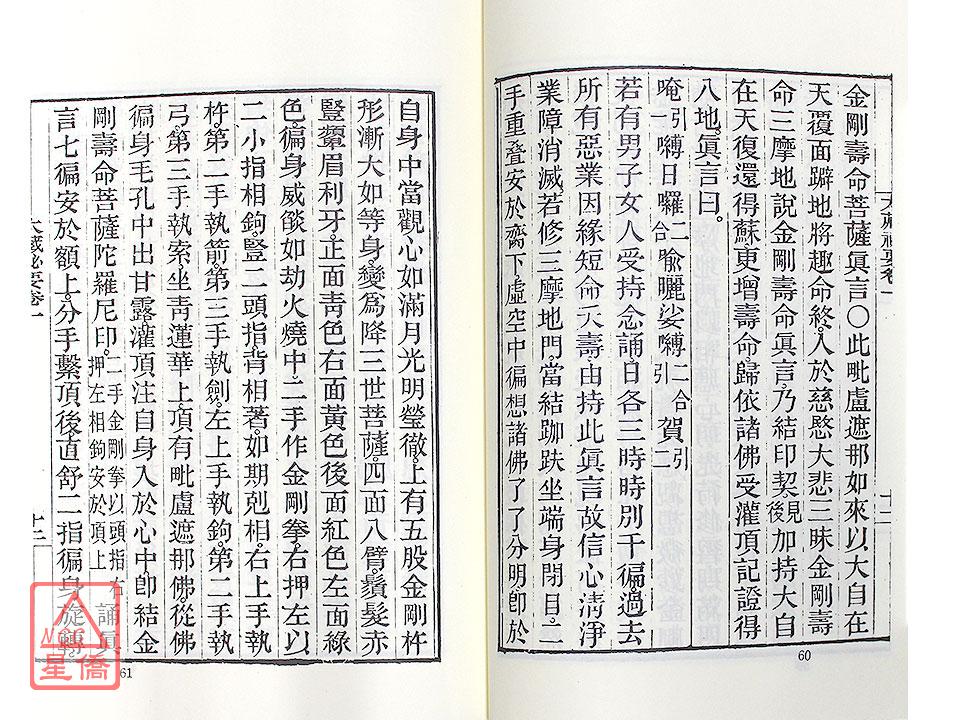 金剛壽命菩薩眞言〇此毗盧遮那如來以大自在
天覆面躃地將趣命終入於慈愍大悲三昧金剛壽
命三摩地說金剛壽命眞言乃結印契見後加持大自
在天復還得蘇更增壽命歸依諸佛受灌頂記證得
八地眞言曰。
唵引一嚩日囉二合喻曬娑嚩二合引賀引二
若有男子女人受持念誦日各三時時別千徧過去
所有惡業因緣短命夭壽由持此眞言故信心淸淨
業障消滅若修三摩地門當結跏趺坐端身閉目二
手重疊安於齋下虛空中徧想諸佛了了分明卽於
大藏祕要卷一
十二
60
自身中當觀心如滿月光明瑩徹上有五股金剛杵
形漸大如等身變爲降三世菩薩四面八臂鬚髮赤
豎顰眉利牙正面靑色右面黃色後面紅色左面綠
色徧身威燄如劫火燒中二手作金剛拳右押左以
二小指相鉤豎二頭指背相著如期剋相右上手執
杵第二手執箭第三手執劍左上手執鉤第二手執
弓第三手執索坐靑蓮華上頂有毗盧遮那佛從佛
徧身毛孔中出甘露灌頂注自身入於心中卽結金
剛壽命菩薩陀羅尼印二手金剛拳以頭指右押左相鉤安於頂上誦眞
言七徧安於額上分手繫頂後直舒二指徧身旋轉。
大藏祕要卷一
十三
61
NCC
星僑